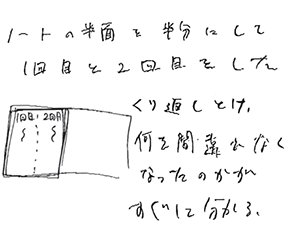 ノートの半面を半分にして
1回目と2回目をした
くり返しとけ、
何を間違れなく
なったのかが
すぐに分かる。
1回目 2回目